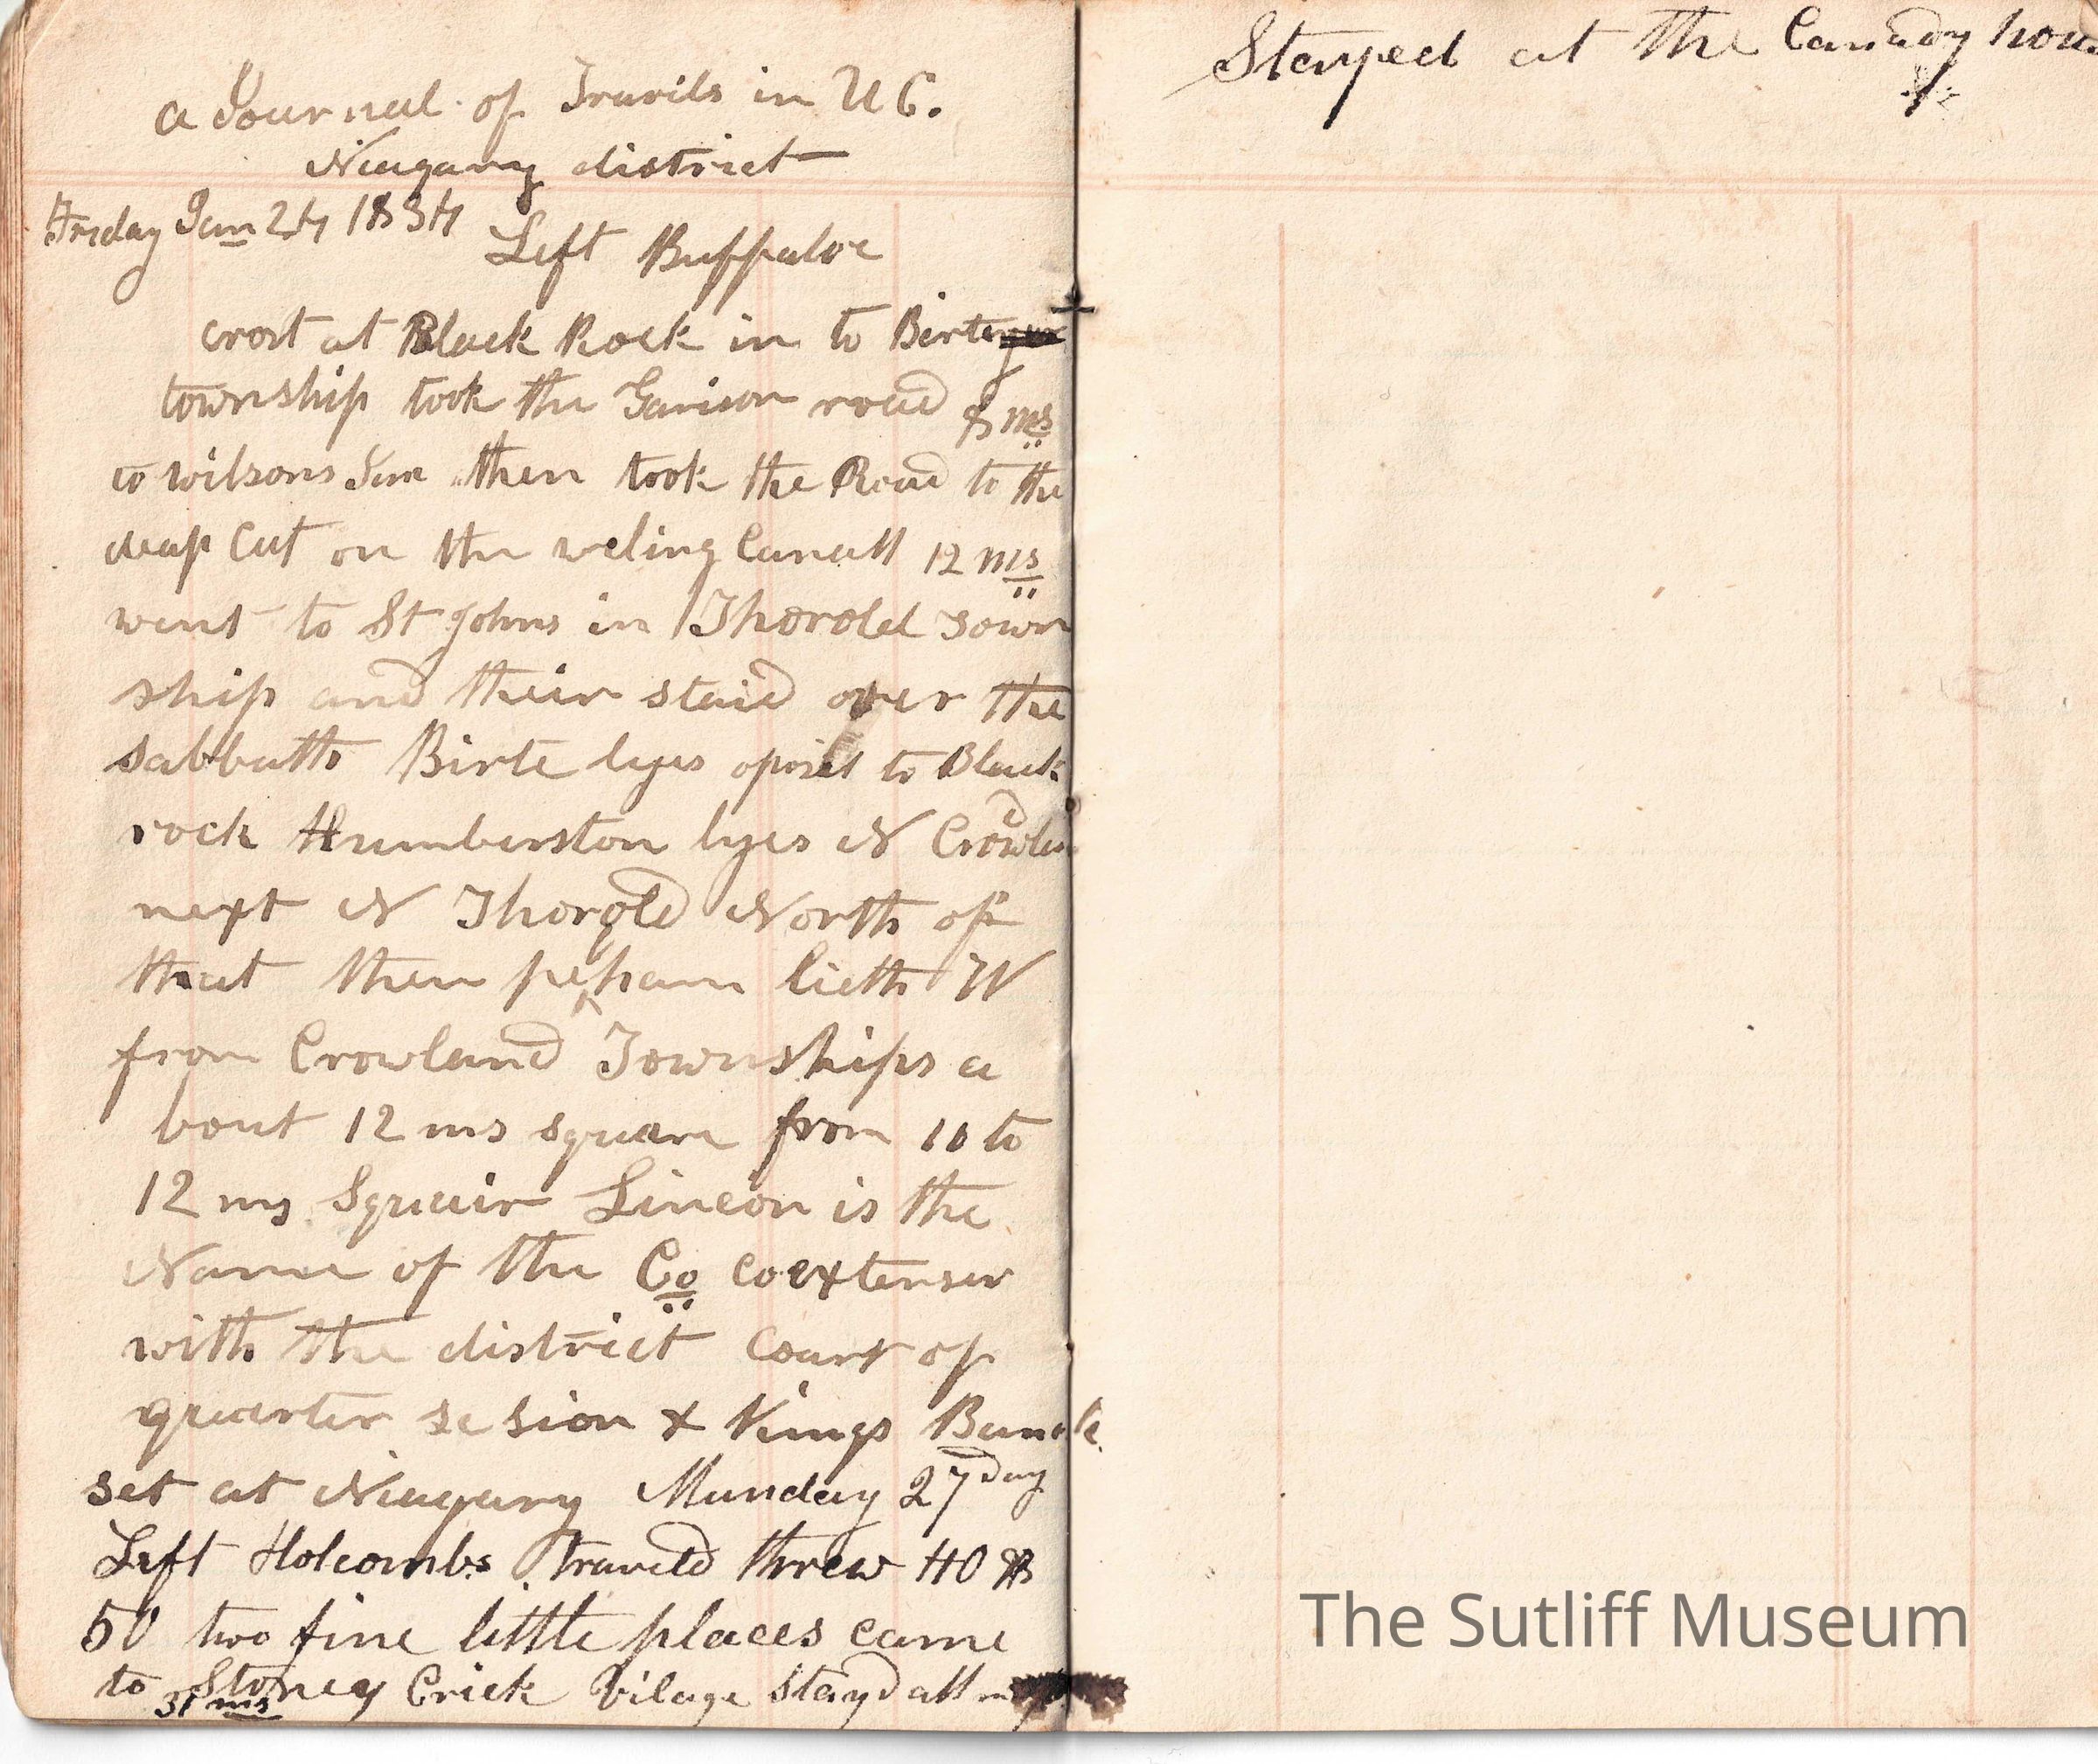 a Journal of Travils in UC.
Niagary district
Friday Jan 24 1834 Left Buffaloe
crost at Black Rock in to Birte
township took the Garison road 8 ms
to wilsons Inn then took the Road to the
deap Cut on the weling Canall 12 ms
went to St Johns in Thorold Town
ship and their staid over the
sabbath Birte lyes oposit to Black
rock Humberston lyes N Crowland
next N Thorold North of
that then pelham lieth W
from Crowland Townships a
bout 12 ms square from 10 to
12 ms Squair Lincon is the
Name of the Co coextensiv
with the district Court of
quarter sesion & Kings Banck
set at Niagary Munday 27 Day
Left Holcombs traveld threw 40 &
50 two fine little places came
to Stoney Crick Vilage stayd all
31 ms
Stayed at the Canady hous
The Sutliff Museum